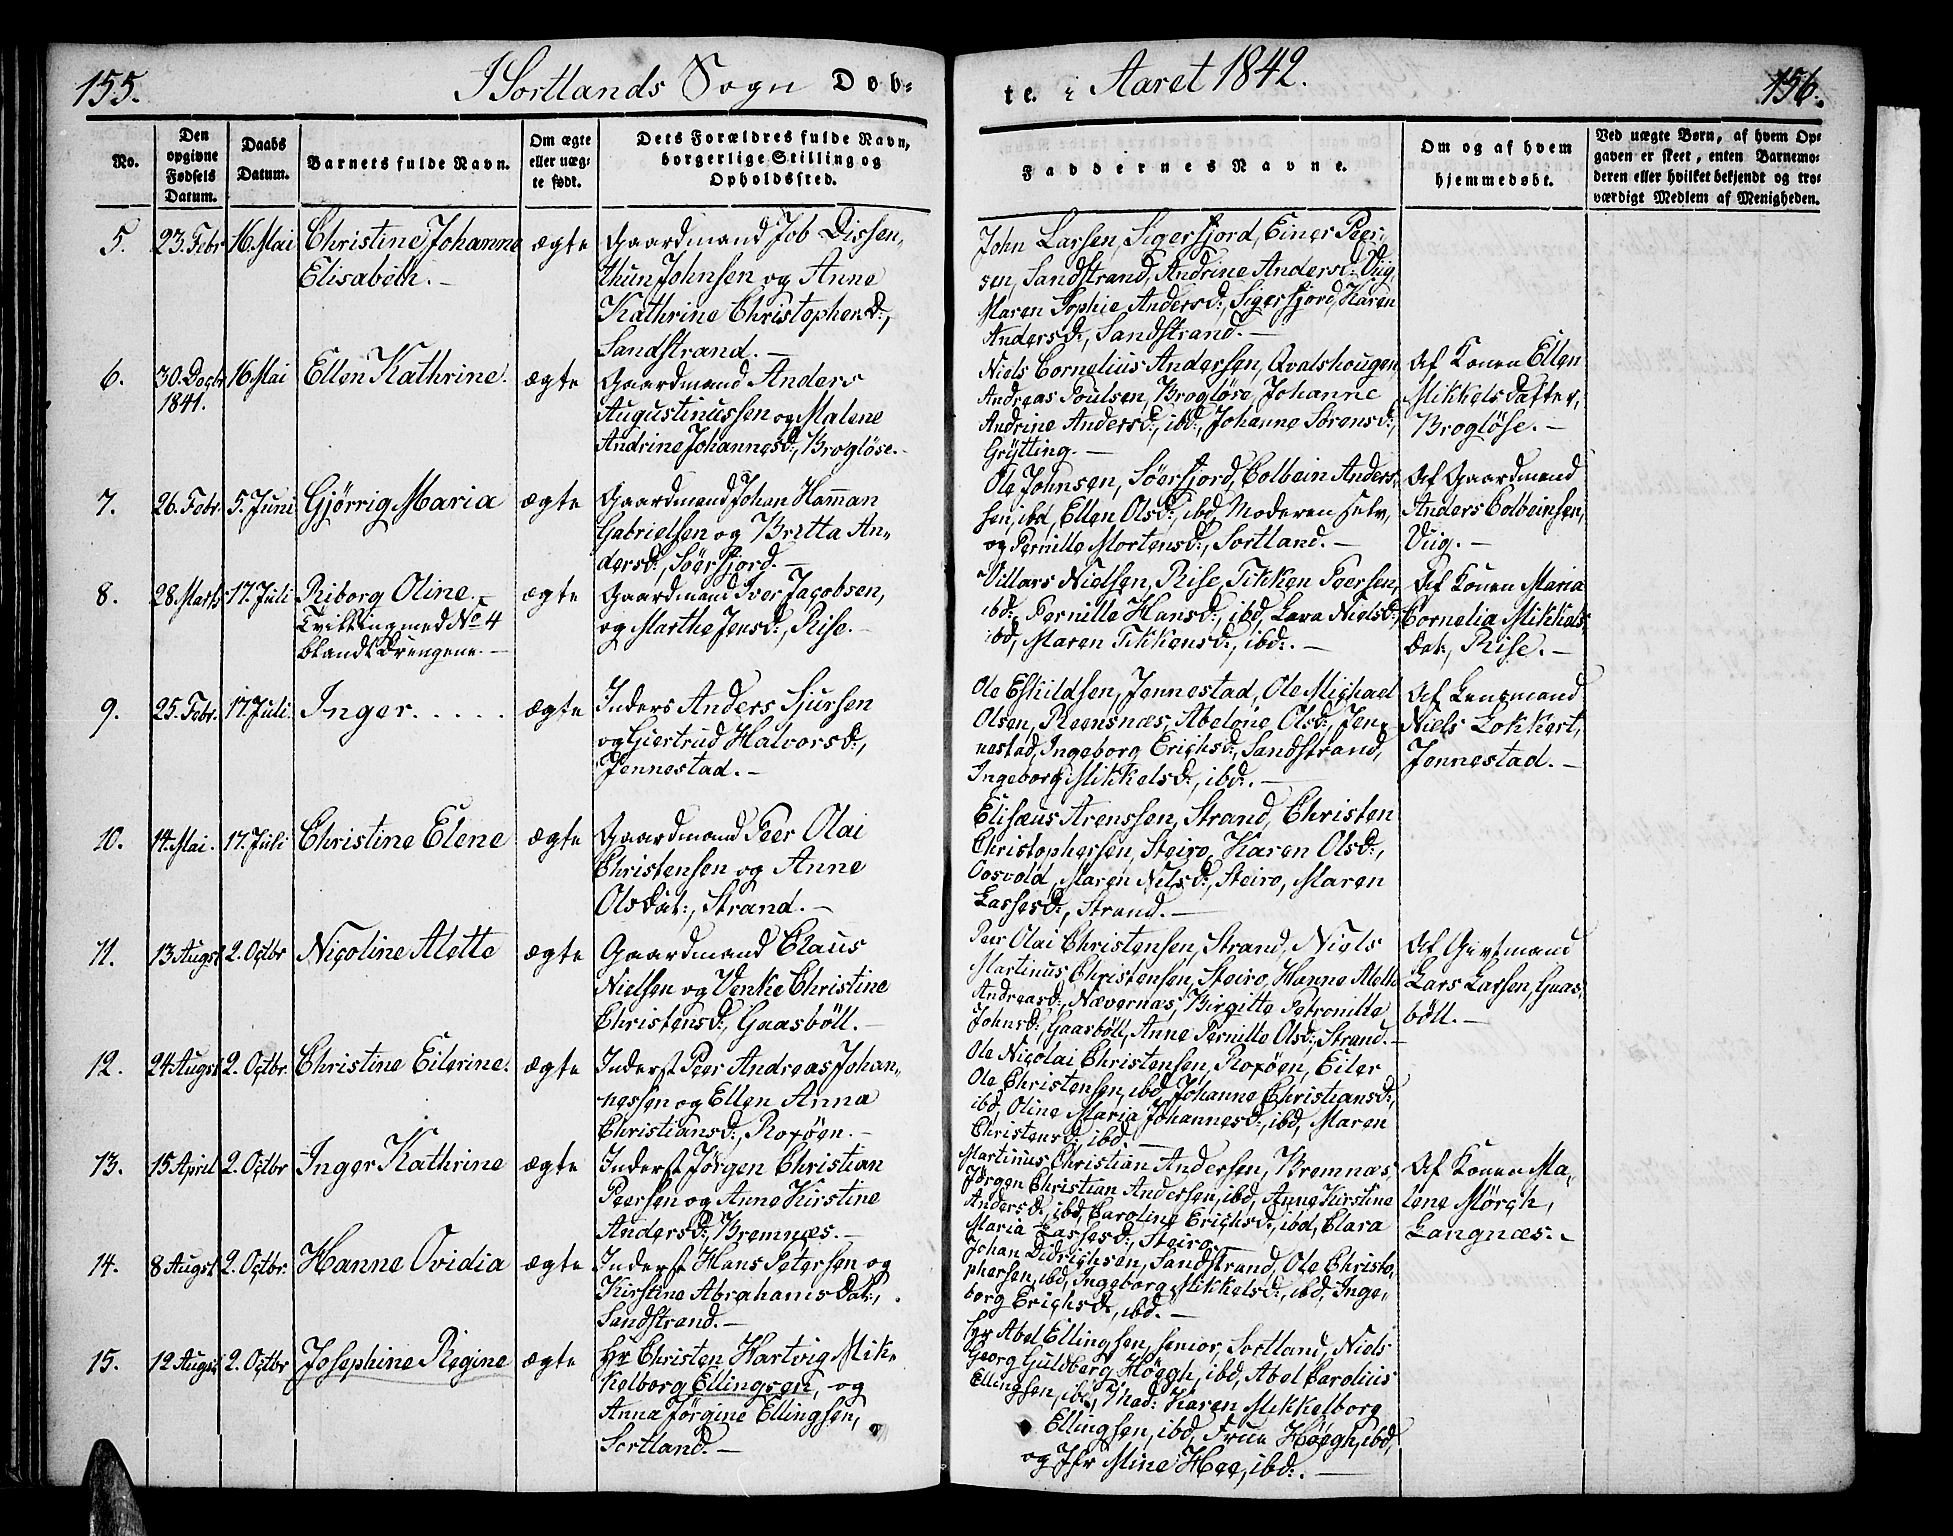 155.
I Sortlands Sogn Døb-
te. i Aaret 1842.
156.
No.
Den opgivne Fødsels Datum.
Daabs Datum.
Barnets fulde Navn.
Om ægte eller uæg- te født.
Dets Forældres fulde Navn, borgerlige Stilling og Opholdssted.
Faddernes Navne.
Om og af hvem hjemmedøbt.
Ved uægte Børn, af hvem Op-
gaven er skeet, enten Barnemo-
deren eller hvilket bekjendt og tro-
værdigt Medlem af Menigheden.
5. 23. Febr 16. Mai Christine Johanne ægte Gaardmand Job Dissen-
Elisabeth. thun Johnsen og Anne
Kathrine Christophersd:,
Sandstrand.
John Larsen, Sigerfjord, Einer Peer-
sen, Sandstrand, Andrine Andersd: Viig
Maren Sophie Andersd:, Sigerfjord, Karen
Andersd:, Sandstrand.
6. 30. Decbr 16. Mai Ellen Kathrine. ægte Gaardmand Anders
1841. Augustinussen og Malene
Andrine Johannesd:, Brogløse.
Niels Cornelius Andersen, Qvalshougen,
Andreas Poulsen, Brogløse, Johanne
Andrine Andersd:, ibd:, Johanne Sørensd:,
Grÿtting.
Af Konen Ellen
Mikkelsdatter,
Brogløse.
7. 26. Febr. 5. Juni Gjørrig Maria ægte Gaardmand Johan Haman
Gabrielsen og Britta An-
dersd:, Søerfjord.
Ole Johnsen, Søerfjord, Colbein Anders-
sen, ibd, Ellen Olsd:, ibd, Moderen selv,
og Pernille Mortensd:, Sortland.
Af Gaardmand
Anders Colbeinsen,
Viig.
8. 28 Marts 17. Juli Riborg Oline. ægte Gaardmand Iver Jacobsen,
Tvilling med No 4 og Marthe Jensd:, Rise.
blandt Drengene.
Villars Nielsen, Rise, Tikken Peersen,
ibd:, Pernille Hansd:, ibd, Lava Nielsd:,
ibd, Maren Tikkensd:, ibd:.
Af Konen Maria
Cornelia Mikkels-
dat:, Rise.
9. 25. Febr. 17. Juli Inger..... ægte Inders Anders Sjursen
og Giertrud Halvorsd:,
Jennestad.
Ole Eskildsen, Jennestad, Ole Michael
Olsen, Reensnæs, Abelone Olsd:, Jen-
nestad, Ingeborg Erichsd:, Sandstrand,
Ingeborg Mikkelsd:, ibd:.
Af Lensmand
Niels Lokkert,
Jennestad.
10. 14. Mai. 17. Juli Christine Elene ægte Gaardmand Peer Olai
Christensen og Anne
Olsdat:, Strand.
Elisæus Arenssen, Strand, Christen
Christophersen, Steiro, Karen Olsd:,
Oosvold, Maren Nilsd:, Steiro, Maren
Lassesd:, Strand.
11. 13 Augst 2. Octbr Nicoline Alette ægte Gaardmand Claus
Nielsen og Venke Christine
Christensd:, Gaasbøll.
Peer Olai Christensen, Strand, Niels
Martinus Christensen, Steiro, Hanne Aleth
Andreasd:, Nævernæs, Birgitte Petronille
Johnsd:, Gaasbøll, Anne Pernille Olsd:, Strand.
Af Givtmand
Lars Larsen, Gaas-
bøll.
12. 24 Augst 2. Octbr. Christine Eilerine. ægte Inderst Peer Andreas Johan-
nessen og Ellen Anna
Christiansd:, Roxøen.
Ole Nicolai Christensen, Roxøen, Eiler
Ole Christensen, ibd, Johanne Christiansd:,
ibd, Oline Maria Johannesd:, ibd, Maren
Christensd:, ibd.
13. 15 April 2. Octbr Inger Kathrine ægte Inderst Jørgen Christian
Peersen og Anne Kirstine
Andersd:, Bremnæs.
Martinus Christian Andersen, Bremnæs,
Jørgen Christian Andersen, ibd, Anne Kirstine
Andersd:, ibd, Caroline Erichsd:, ibd, Clara
Maria Lassesd:, Steiro.
Af Konen Ma-
lene Mørch,
Langnæs.
14. 8 Augst 2. Octbr. Hanne Ovidia ægte Inderst Hans Petersen og
Kirstine Abrahamsdat:,
Sandstrand.
Johan Didrichsen, Sandstrand, Ole Christo-
phersen, ibd, Ingeborg Mikkelsd:, ibd, Inge-
borg Erichsd:, ibd.
15. 12 Augst 2. Octbr Josephine Regine ægte Hr Christen Hartvig Mik-
kelborg Ellingsen, og
Anna Jørgine Ellingsen,
Sortland.
Hr Abel Ellingsen, senior, Sortland, Niels
Georg Guldberg Høegh, ibd, Abel Carolius
Ellingsen, ibd, Mad: Karen Mikkelborg
Ellingsen, ibd, Frue Høegh, ibd,
og Jfr Mine Hee, ibd:.